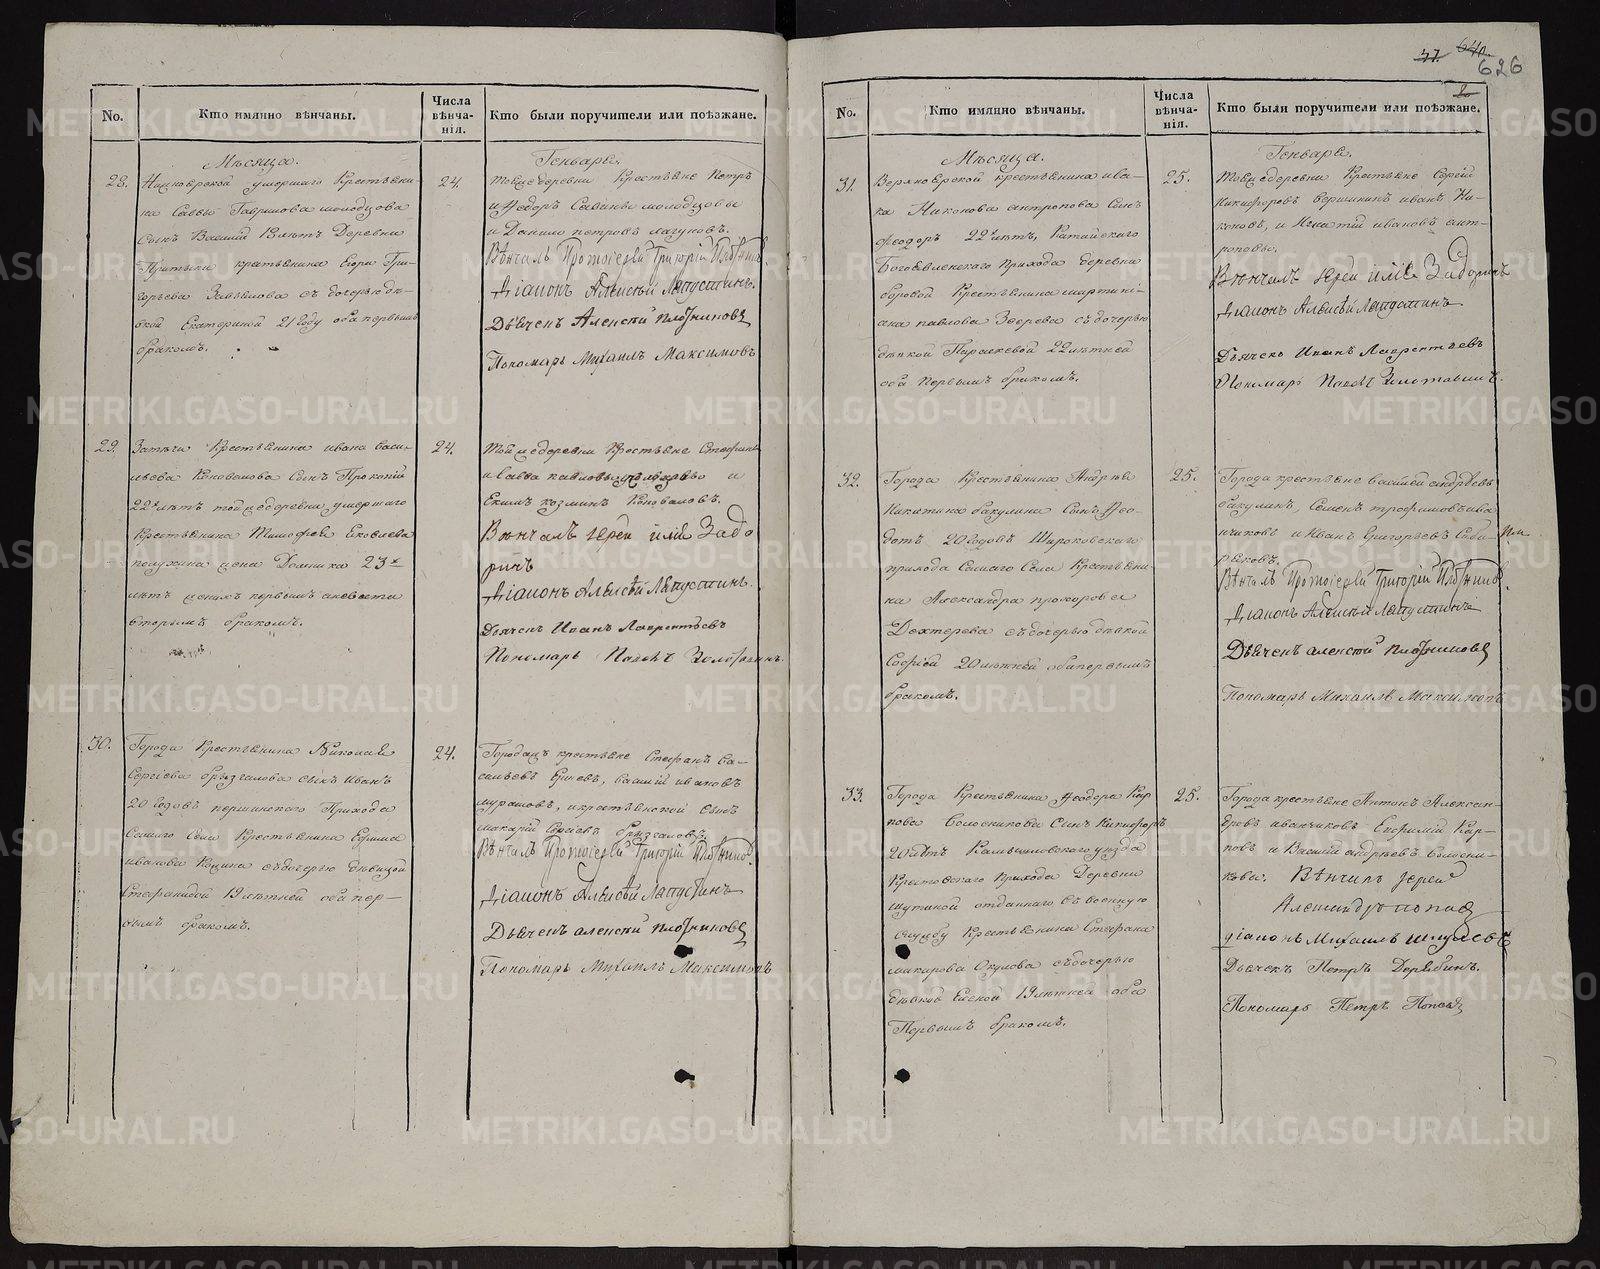 No.
Кто имянно вѣнчаны.
Числа
вѣнча-
нія.
Кто были поручители или поѣзжане.
Мѣсяца.
Генваря.
28.
умершаго Крестьяни-
на Саввы Гаврилова молодцова
Сынъ Василій 18 лѣтъ Деревни
крестьянина Егора Гри-
горьева съ дочерью дѣ-
вкой Екатериной 21 году оба первымъ
бракомъ.
24.
тойже деревни Крестьяне Петръ
и Федоръ Савины молодцовы
и Данило петровъ лагуновъ.
Вѣнчалъ Протоіерей Григорій Плотниковъ
Діаконъ Алексѣй Лапустинъ.
Дьячекъ Алексѣй Плотниковъ
Пономарь Михаилъ Максимовъ
29.
Крестьянина ивана васи-
льева Коновалова Сынъ Прокопій
22х лѣтъ той же деревни умершаго
Крестьянина Тимофея Яковлева
жена Домника 23х
лѣтъ первымъ а невеста
вторымъ бракомъ.
24.
той же деревни Крестьяне Стефанъ
и Савва павловы и
Екимъ козминъ Коноваловъ.
Вѣнчалъ іерей Илія Задо
ринъ
Діаконъ Алексѣй Лапустинъ.
Дьячекъ Иванъ Лаврентьевъ
Пономарь Павелъ Золотавинъ.
30.
Города Крестьянина Николая
Сергіева брызгалова сынъ Иванъ
20 годовъ першинскаго Прихода
Самаго села Крестьянина Ефима
иванова Кацина съ дочерью дѣвицой
Стефанидой 19 лѣтней оба пер-
вымъ бракомъ.
24.
крестьяне Стефанъ Ва-
сильевъ василій ивановъ
мурашовъ, и крестьянской сынъ
макарій Сергіевъ брызгаловъ.
Вѣнчалъ Протоіерей Григорій Плотниковъ
Діаконъ Алексѣй Лапустинъ
Дьячекъ алексѣй плотниковъ
Пономарь Михаилъ Максимовъ
57.
626
No.
Кто имянно вѣнчаны.
Числа
вѣнча-
нія.
Кто были поручители или поѣзжане.
Мѣсяца.
Генваря.
31.
крестьянина ива-
на Никонова антропова Сынъ
Феодоръ 22 лѣтъ, Катайскаго
Богоявленскаго прихода деревни
боровой Крестьянина мартини-
ана павлова Зверева съ дочерью
дѣвкой Параскевой 22 лѣтней
оба первымъ бракомъ.
25.
тойже деревни Крестьяне Сергій
Никифоровъ Вершининъ иванъ Ни-
коновъ, и Игнатій ивановъ ант-
роповы.
Вѣнчалъ іерей Илія Задоринъ
Діаконъ Алексѣй Лапустинъ
Дьячекъ Иванъ Лаврентьевъ
Пономарь Павелъ Золотавинъ.
32.
Города Крестьянина Андрея
Никитина бакулина Сынъ Фео-
дотъ 20 годовъ Широковскаго
прихода Самаго Села Крестьяни-
на Александра прохорова
Дехтерева съ дочерью дѣвкой
Софіей 20 лѣтней оба первымъ
бракомъ.
25.
Города крестьяне василей андреевъ
бакулинъ, Семенъ трофимовъ
и Иванъ Григорьевъ
Вѣнчалъ Протоіерей Григорій Плотниковъ
Діаконъ Алексѣй Лапустинъ
Дьячекъ алексѣй плотниковъ
Пономарь Михаилъ Максимовъ
33.
Города Крестьянина Феодора Кар
пова Сынъ Никифоръ
20 лѣтъ Камышловскаго уезда
Крестовскаго прихода Деревни
отданнаго въ военную
службу Крестьянина Стефана
макарова Окулова съ дочерью
дѣвкою Еленой 19 лѣтней оба
Первымъ бракомъ.
25.
Города крестьяне Антонъ Алексан-
дровъ иванчиковъ Ефимій Кар-
повъ и Василій андреевъ
Вѣнчалъ іерей
Александръ попов
діаконъ Михаилъ
Дьячекъ Петръ Дерябинъ.
Пономарь Петръ Попов
METRIKI.GASO-URAL.RU